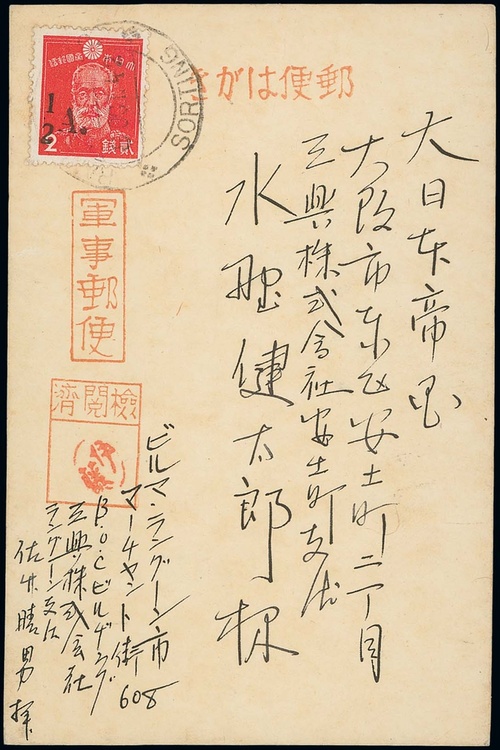 郵便はがき
大日本帝国
大阪市東区安土町二丁目
三興株式会社安土町支店
水野健太郎様
軍事郵便
検閲済
伊藤
ビルマ・ラングーン市
マーチャント街608
B.O.Cビルヂング
三興株式会社
ラングーン支店
佐井晴男拝
大日本帝国郵便
1
2-A.
2
貳銭
SORTING